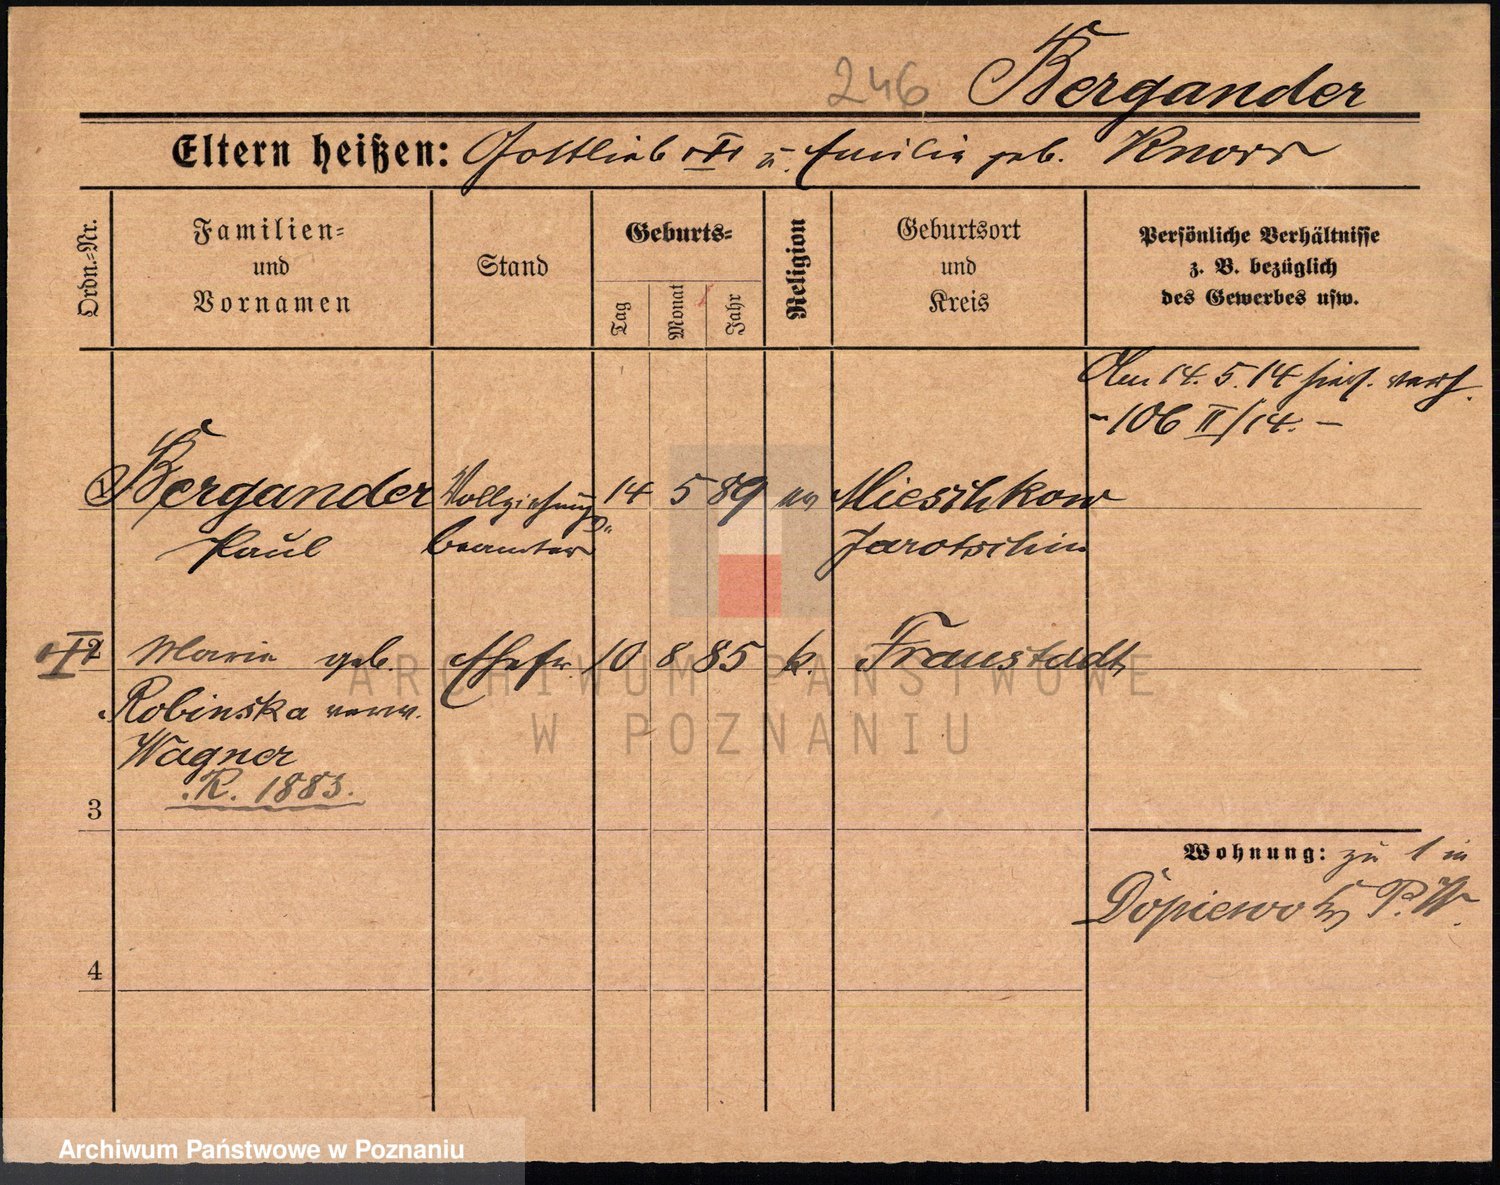 246 Bergander
Eltern heißen: Gottlieb u. Emilie geb. Knorr
Ordn.-Nr.
Familien-
und
Vornamen
Stand
Geburts-
Tag
Monat
Jahr
Religion
Geburtsort
und
Kreis
Persönliche Verhältnisse
z. B. bezüglich
des Gewerbes usw.
14. 5. 14
-106 II/14.-
1 Bergander Vollziehungs- 14 5 89 ev Mieschkow
Paul beamter Jarotschin
2 Marie geb. Ehefr. 10 8 85 k. Fraustadt
Robinska verw.
Wagner
R. 1883.
3
Wohnung: zu 1 in
Dopiewo P. W.
4
ARCHIWUM PAŃSTWOWE
W POZNANIU
Archiwum Państwowe w Poznaniu